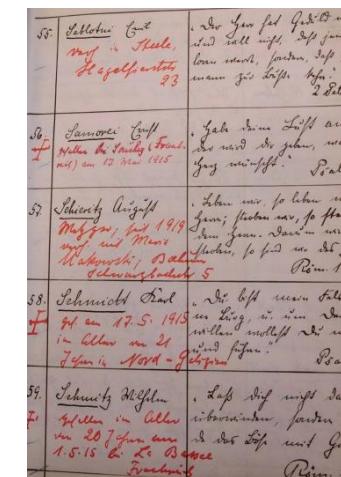 55. Sablotni Emil
verh. in Steele,
23
„Der Herr hat Geduld
und will nicht, daß
loren werde, sondern, daß
mann zur Buße
56. Ernst
gefallen bei
am 17 Mai 1915
„Habe deine Lust an
der wird dir geben, was
Herz wünschet."
57. Schieritz August
Metzger, seit 1919
verh. mit Marie
Makowski;
Schwarzbacherstr 5
„Leben wir, so leben wir
Herrn; sterben wir, so
dem Herrn. Darum wir
sterben, so sind wir des
Röm. 1
58. Schmidt Karl
gef. am 17.5. 1915
im Alter von 21
Jahren in Nord-
„Du bist mein Fels
Burg, u. um
willen wollest Du
und führen."
Psa
59. Schmitz Wilhelm
gefallen im Alter
von 20 Jahren am
1.5.15 bei La Bassee
Frankreich
„Laß dich nicht das
überwinden, sondern
das Böse mit
Röm.